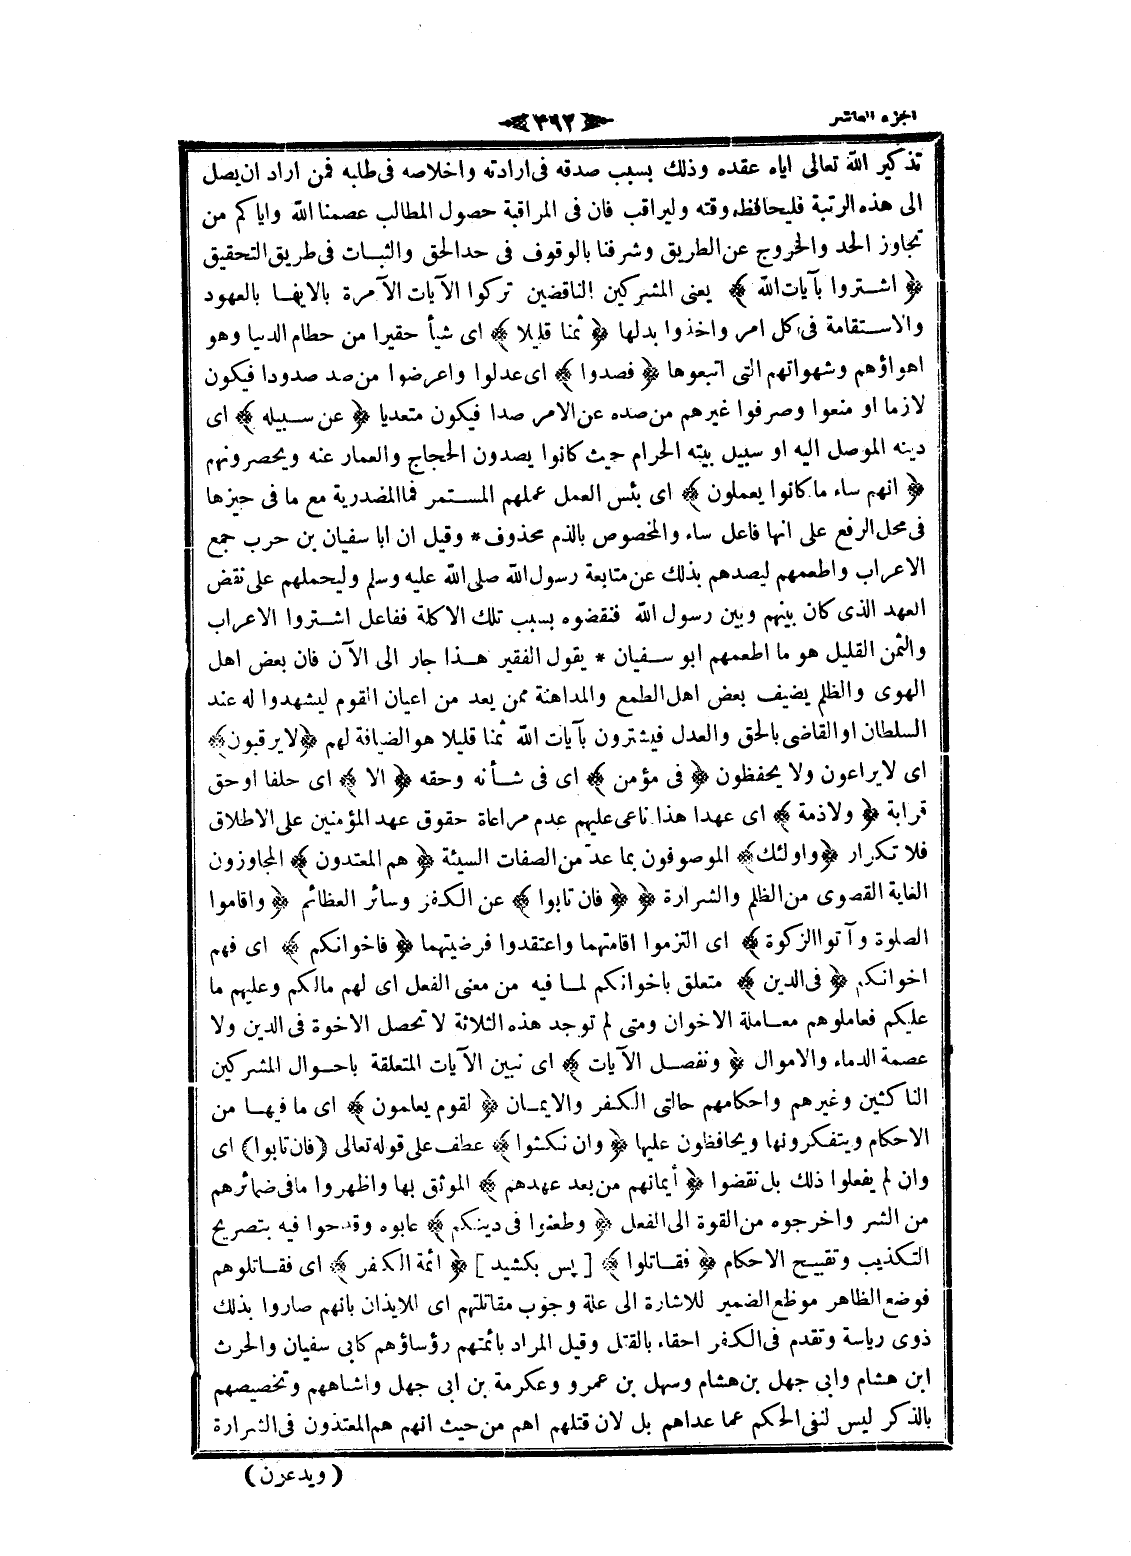 الجزء العاشر
﴿٣٩٢﴾
تذكير الله تعالى اياه عقده وذلك بسبب صدقه فى ارادته واخلاصه فى طلبه فمن اراد ان يصل
الى هذه الرتبة فليحافظ وقته وليراقب فان فى المراقبة حصول المطالب عصمنا الله واياكم من
تجاوز الحد والخروج عن الطريق وشرفنا بالوقوف فى حد الحق والثبات فى طريق التحقيق
﴿ اشتروا بآيات الله ﴾ يعنى المشركين الناقضين تركوا الآيات الآمرة بالايفا بالعهود
والاستقامة فى كل امر واخذوا بدلها ﴿ ثمنا قليلا ﴾ اى شيأ حقيرا من حطام الدنيا وهو
اهواؤهم وشهواتهم التى اتبعوها ﴿ فصدوا ﴾ اى عدلوا واعرضوا من صد صدودا فيكون
لازما او منعوا وصرفوا غيرهم من صده عن الامر صدا فيكون متعديا ﴿ عن سبيله ﴾ اى
دينه الموصل اليه او سبيل بيته الحرام حيث كانوا يصدون الحجاج والعمار عنه ويحصرونهم
﴿ انهم ساء ما كانوا يعملون ﴾ اى بئس العمل عملهم المستمر فما المصدرية مع ما فى حيزها
فى محل الرفع على انها فاعل ساء والمخصوص بالذم محذوف * وقيل ان ابا سفيان بن حرب جمع
الاعراب واطعمهم ليصدهم بذلك عن متابعة رسول الله صلى الله عليه وسلم وليحملهم على نقض
العهد الذى كان بينهم وبين رسول الله فنقضوه بسبب تلك الاكلة ففاعل اشتروا الاعراب
والثمن القليل هو ما اطعمهم ابو سفيان * يقول الفقير هذا جار الى الآن فان بعض اهل
الهوى والظلم يضيف بعض اهل الطمع والمداهنة ممن يعد من اعيان القوم ليشهدوا له عند
السلطان او القاضى بالحق والعدل فيشترون بآيات الله ثمنا قليلا هو الضيافة لهم ﴿لا يرقبون﴾
اى لا يراعون ولا يحفظون ﴿ فى مؤمن ﴾ اى فى شأنه وحقه ﴿ الا ﴾ اى حلفا او حق
قرابة ﴿ ولا ذمة ﴾ اى عهدا هذا ناعى عليهم عدم مراعاة حقوق عهد المؤمنين على الاطلاق
فلا تكرار ﴿واولئك﴾ الموصوفون بما عد من الصفات السيئة ﴿ هم المعتدون ﴾ المجاوزون
الغاية القصوى من الظلم والشرارة ﴿ ﴿ فان تابوا ﴾ عن الكفر وسائر العظائم ﴿ واقاموا
الصلوة وآتوا الزكوة ﴾ اى التزموا اقامتهما واعتقدوا فرضيتهما ﴿ فاخوانكم ﴾ اى فهم
اخوانكم ﴿ فى الدين ﴾ متعلق باخوانكم لما فيه من معنى الفعل اى لهم مالكم وعليهم ما
عليكم فعاملوهم معاملة الاخوان ومتى لم توجد هذه الثلاثة لا تحصل الاخوة فى الدين ولا
عصمة الدماء والاموال ﴿ ونفصل الآيات ﴾ اى نبين الآيات المتعلقة باحوال المشركين
الناكثين وغيرهم واحكامهم حالتى الكفر والايمان ﴿ لقوم يعلمون ﴾ اى ما فيها من
الاحكام ويتفكرونها ويحافظون عليها ﴿ وان نكثوا ﴾ عطف على قوله تعالى (فان تابوا) اى
وان لم يفعلوا ذلك بل نقضوا ﴿ أيمانهم من بعد عهدهم ﴾ الموثق بها واظهروا ما فى ضمائرهم
من الشر واخرجوه من القوة الى الفعل ﴿ وطعنوا فى دينكم ﴾ عابوه وقدحوا فيه بتصريح
التكذيب وتقبيح الاحكام ﴿ فقاتلوا ﴾ [ پس بكشيد ] ﴿ ائمة الكفر ﴾ اى فقاتلوهم
فوضع الظاهر موظع الضمير للاشارة الى علة وجوب مقاتلتهم اى للايذان بانهم صاروا بذلك
ذوى رياسة وتقدم فى الكفر احقاء بالقتل وقيل المراد بائمتهم رؤساؤهم كابى سفيان والحرث
ابن هشام وابى جهل بن هشام وسهل بن عمرو وعكرمة بن ابى جهل واشباههم وتخصيصهم
بالذكر ليس لنفى الحكم عما عداهم بل لان قتلهم اهم من حيث انهم هم المعتدون فى الشرارة
( ويدعون )